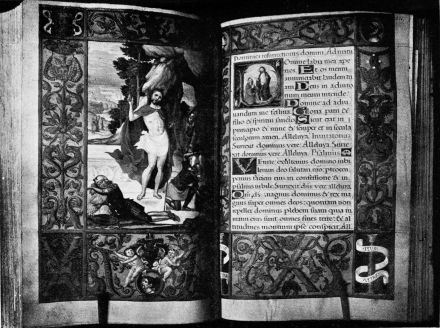 Omine labia mea ape
nes Et os meum
annuntiabit laudem tuā
Deus in adiuto
rium meum intende
Domine ad adiu
uandum me festina Gloria patri &
filio & spiritui sancto Sicut erat in
principio & nunc & semper et in secula
seculorum amen. Alleluya.
dominus vere Alleluya. Surre
xit dominus vere Alleluya. Psalmus
Venite, exultemus domino iubi
lemus deo salutari nro:
pemus faciem eius in confessione & in
psalmis iubile. Surrexit dns vere alleluia
magnus dominus & rex ma
gnus super omnes deos: quoniam non
repellet dominus plebem suam quia in
manu eius sunt omnes fines terre: & al
titudines montium ipse conspicit. All